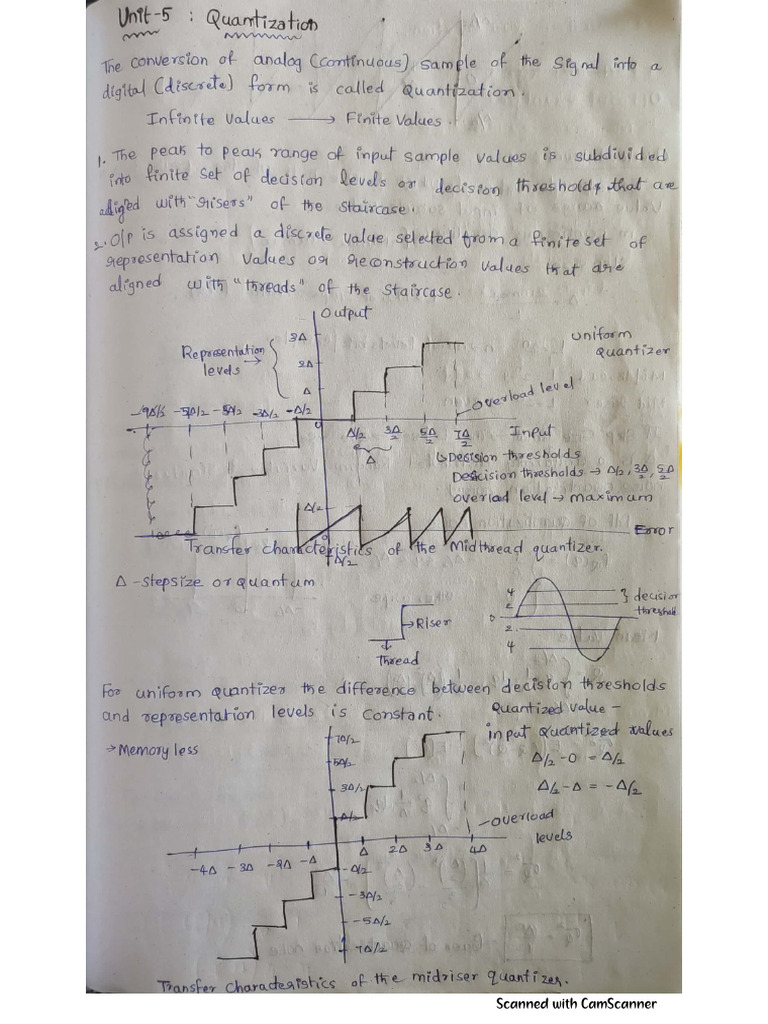 Unit-5 : Quantization
The conversion of analog (continuous) sample of the signal into a
digital (discrete) form is called Quantization.
Infinite values ⟶ Finite values.
1. The peak to peak range of input sample values is subdivided
into finite set of decision levels or decision thresholds that are
aligned with "risers" of the staircase.
2. O/P is assigned a discrete value selected from a finite set of
representation values or reconstruction values that are
aligned with "threads" of the staircase.
Output
Representation
levels →
3Δ
2Δ
Δ
uniform
quantizer
Overload level
-5Δ/2 -3Δ/2 -Δ/2
0
Δ/2 3Δ/2 5Δ/2 7Δ/2 Input
Δ
↳ Decision thresholds
Decision thresholds → Δ/2, 3Δ/2, 5Δ/2
overload level → maximum
Δ/2
0
Error
-Δ/2
Transfer characteristics of the Midthread quantizer.
Δ - stepsize or quantum
→ Riser
Thread
4
2
0
2
4
} decision
threshold
For uniform quantizer the difference between decision thresholds
and representation levels is constant.
→ Memory less
Quantized value -
input quantized values
Δ/2 - 0 = Δ/2
Δ/2 - Δ = -Δ/2
7Δ/2
5Δ/2
3Δ/2
Δ/2
- overload
levels
-4Δ -3Δ -2Δ -Δ
Δ 2Δ 3Δ 4Δ
-Δ/2
-3Δ/2
-5Δ/2
7Δ/2
Transfer characteristics of the midriser quantizer.
Scanned with CamScanner